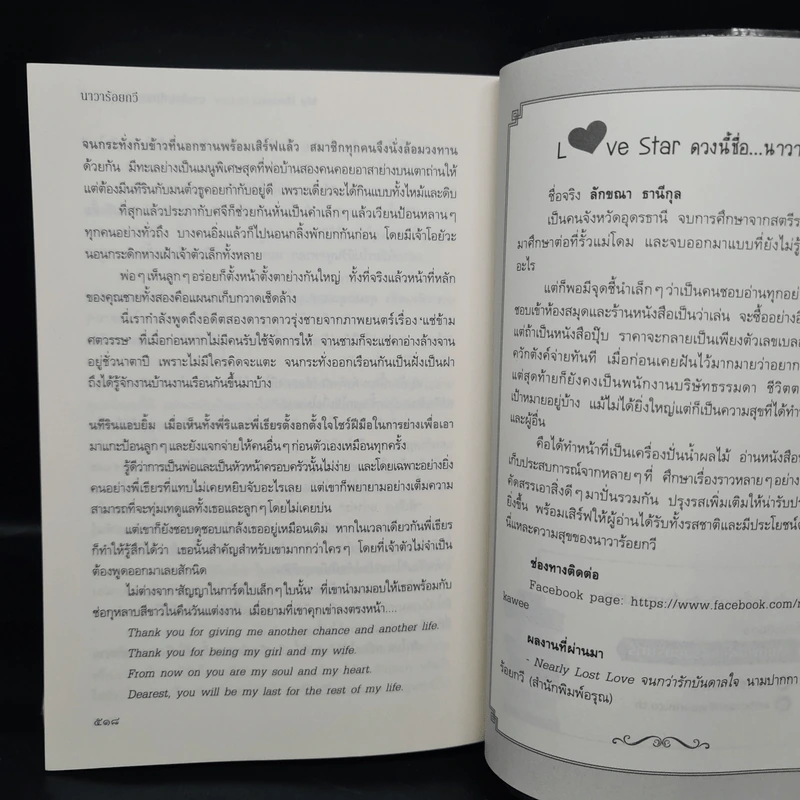 นาวาร้อยกวี
จนกระทั่งกับข้าวที่นอกชานพร้อมเสิร์ฟแล้ว สมาชิกทุกคนจึงนั่งล้อมวงทาน
ด้วยกัน มีทะเลย่างเป็นเมนูพิเศษสุดที่พ่อบ้านสองคนคอยอาสาย่างบนเตาถ่านให้
แต่ต้องมีนทีรินกับมนตัวธูคอยกำกับอยู่ดี เพราะเดี๋ยวจะได้กินแบบทั้งไหม้และดิบ
ที่สุกแล้วประภากับศจีก็ช่วยกันหั่นเป็นคำเล็กๆ แล้วเวียนป้อนหลานๆ
ทุกคนอย่างทั่วถึง บางคนอิ่มแล้วก็ไปนอนกลิ้งพักยกกันก่อน โดยมีเจ้าโอย้วะ
นอนกระดิกหางเฝ้าเจ้าตัวเล็กทั้งหลาย
พ่อๆ เห็นลูกๆ อร่อยก็ตั้งหน้าตั้งตาย่างกันใหญ่ ทั้งที่จริงแล้วหน้าที่หลัก
ของคุณชายทั้งสองคือแผนกเก็บกวาดเช็ดล้าง
นี่เรากำลังพูดถึงอดีตสองดาราดาวรุ่งชายจากภาพยนตร์เรื่อง 'แซ่ข้าม
ศตวรรษ' ที่เมื่อก่อนหากไม่มีคนรับใช้จัดการให้ จานชามก็จะแช่คาอ่างล้างจาน
อยู่ชั่วนาตาปี เพราะไม่มีใครคิดจะแตะ จนกระทั่งออกเรือนกันเป็นฝั่งเป็นฝา
ถึงได้รู้จักงานบ้านงานเรือนกันขึ้นมาบ้าง
นทีรินแอบยิ้ม เมื่อเห็นทั้งพี่ริและพี่เธียรตั้งอกตั้งใจโชว์ฝีมือในการย่างเพื่อเอา
มาแกะป้อนลูกๆ และยังแจกจ่ายให้คนอื่นๆ ก่อนตัวเองเหมือนทุกครั้ง
รู้ดีว่าการเป็นพ่อและเป็นหัวหน้าครอบครัวนั้นไม่ง่าย และโดยเฉพาะอย่างยิ่ง
คนอย่างพี่เธียรที่แทบไม่เคยหยิบจับอะไรเลย แต่เขาก็พยายามอย่างเต็มความ
สามารถที่จะทุ่มเทดูแลทั้งเธอและลูกๆ โดยไม่เคยบ่น
แต่เขาก็ยังชอบดุชอบแกล้งเธออยู่เหมือนเดิม หากในเวลาเดียวกันพี่เธียร
ก็ทำให้รู้สึกได้ว่า เธอนั้นสำคัญสำหรับเขามากกว่าใครๆ โดยที่เจ้าตัวไม่จำเป็น
ต้องพูดออกมาเลยสักนิด
ไม่ต่างจาก 'สัญญาในการ์ดใบเล็กๆ ใบนั้น' ที่เขานำมามอบให้เธอพร้อมกับ
ช่อกุหลาบสีขาวในคืนวันแต่งงาน เมื่อยามที่เขาคุกเข่าลงตรงหน้า....
Thank you for giving me another chance and another life.
Thank you for being my girl and my wife.
From now on you are my soul and my heart.
Dearest, you will be my last for the rest of my life.
๕๑๘
L ve Star ดวงนี้ชื่อ...นาวา
ชื่อจริง ลักขณา ธานีกุล
เป็นคนจังหวัดอุดรธานี จบการศึกษาจากสตรีร
มาศึกษาต่อที่รั้วแม่โดม และจบออกมาแบบที่ยังไม่รู้
อะไร
แต่ก็พอมีจุดชี้นำเล็กๆ ว่าเป็นคนชอบอ่านทุกอย่
ชอบเข้าห้องสมุดและร้านหนังสือเป็นว่าเล่น จะซื้ออย่างอื
แต่ถ้าเป็นหนังสือปุ๊บ ราคาจะกลายเป็นเพียงตัวเลขเบลอ
ควักตังค์จ่ายทันที เมื่อก่อนเคยฝันไว้มากมายว่าอยาก
แต่สุดท้ายก็ยังคงเป็นพนักงานบริษัทธรรมดา ชีวิตต
เป้าหมายอยู่บ้าง แม้ไม่ได้ยิ่งใหญ่แต่ก็เป็นความสุขที่ได้ทำ
และผู้อื่น
คือได้ทำหน้าที่เป็นเครื่องปั่นน้ำผลไม้ อ่านหนังสือ
เก็บประสบการณ์จากหลายๆ ที่ ศึกษาเรื่องราวหลายๆ อย่าง
คัดสรรเอาสิ่งดีๆ มาปั่นรวมกัน ปรุงรสเพิ่มเติมให้น่ารับป
ยิ่งขึ้น พร้อมเสิร์ฟให้ผู้อ่านได้รับทั้งรสชาติและมีประโยชน์
นี่แหละความสุขของนาวาร้อยกวี
ช่องทางติดต่อ
Facebook page: https://www.facebook.com/
kawee
ผลงานที่ผ่านมา
- Nearly Lost Love จนกว่ารักบันดาลใจ นามปากกา
ร้อยกวี (สำนักพิมพ์อรุณ)